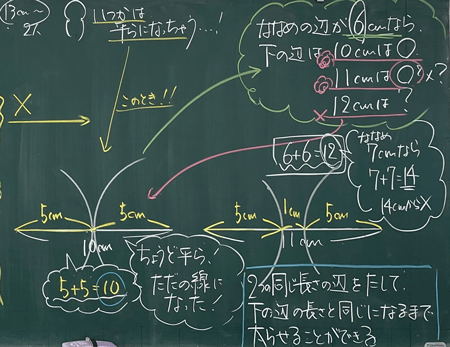 13cm〜
いつかは
平らになっちゃう…!
このとき!!
X
ななめの辺が6cmなら、
下の辺は10cmは○
11cmは○?x?
x 12cmは?
6+6=12
ななめ
7cmなら
7+7=14
14cmからX
5cm 5cm
10cm
5+5=10
ちょうど平ら!
ただの線に
なった!
5cm 1cm 5cm
11cm
2つの同じ長さの辺をたして、
下の辺の長さと同じになるまで
太らせることができる